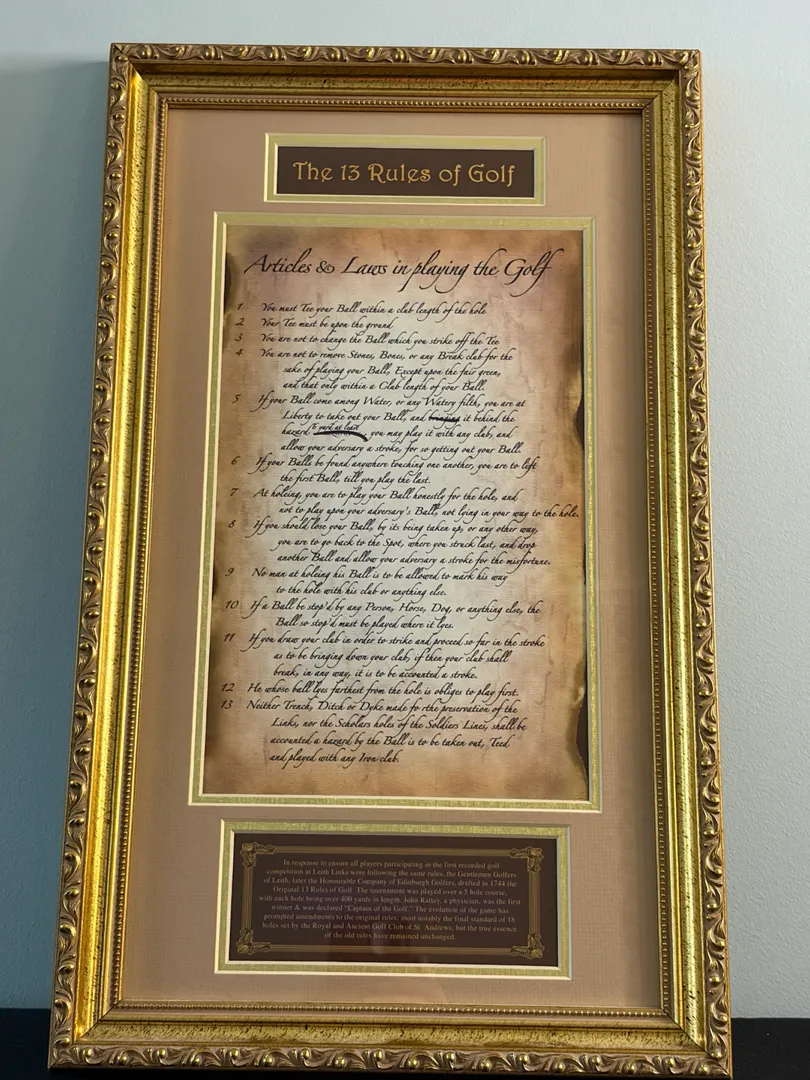 The 13 Rules of Golf
Articles & Laws in playing the Golf
1 You must Tee your Ball within a club length of the hole
2 Your Tee must be upon the ground
3 You are not to change the Ball which you strike off the Tee
4 You are not to remove Stones, Bones, or any Break club for the
sake of playing your Ball, Except upon the fair green,
and that only within a Club length of your Ball.
5 If your Ball come among Water, or any Watery filth, you are at
Liberty to take out your Ball, and bringing it behind the
hazard, 6 yard at least, you may play it with any club, and
allow your adversary a stroke, for so getting out your Ball.
6 If your Balls be found anywhere touching one another, you are to left
the first Ball, till you play the last.
7 At holeing, you are to play your Ball honestly for the hole, and
not to play upon your adversary's Ball, not lying in your way to the hole.
8 If you should lose your Ball, by its being taken up, or any other way,
you are to go back to the Spot, where you struck last, and drop
another Ball and allow your adversary a stroke for the misfortune.
9 No man at holeing his Ball is to be allowed to mark his way
to the hole with his club or anything else.
10 If a Ball be stop'd by any Person, Horse, Dog, or anything else, the
Ball so stop'd must be played where it lyes.
11 If you draw your club in order to strike and proceed so far in the stroke
as to be bringing down your club, if then your club shall
break, in any way, it is to be accounted a stroke.
12 He whose ball lyes farthest from the hole is obliges to play first.
13 Neither Trench, Ditch or Dyke made fo rthe preservation of the
Links, nor the Scholars holes of the Soldiers Lines, shall be
accounted a hazard by the Ball is to be taken out, Teed
and played with any Iron club.
In response to ensure all players participating in the first recorded golf
competition at Leith Links were following the same rules, the Gentlemen Golfers
of Leith, later the Honourable Company of Edinburgh Golfers, drafted in 1744 the
Original 13 Rules of Golf. The tournament was played over a 5 hole course,
with each hole being over 400 yards in length. John Rattay, a physician, was the first
winner & was declared "Captain of the Golf." The evolution of the game has
prompted amendments to the original rules; most notably the final standard of 18
holes set by the Royal and Ancient Golf Club of St. Andrews, but the true essence
of the old rules have remained unchanged.